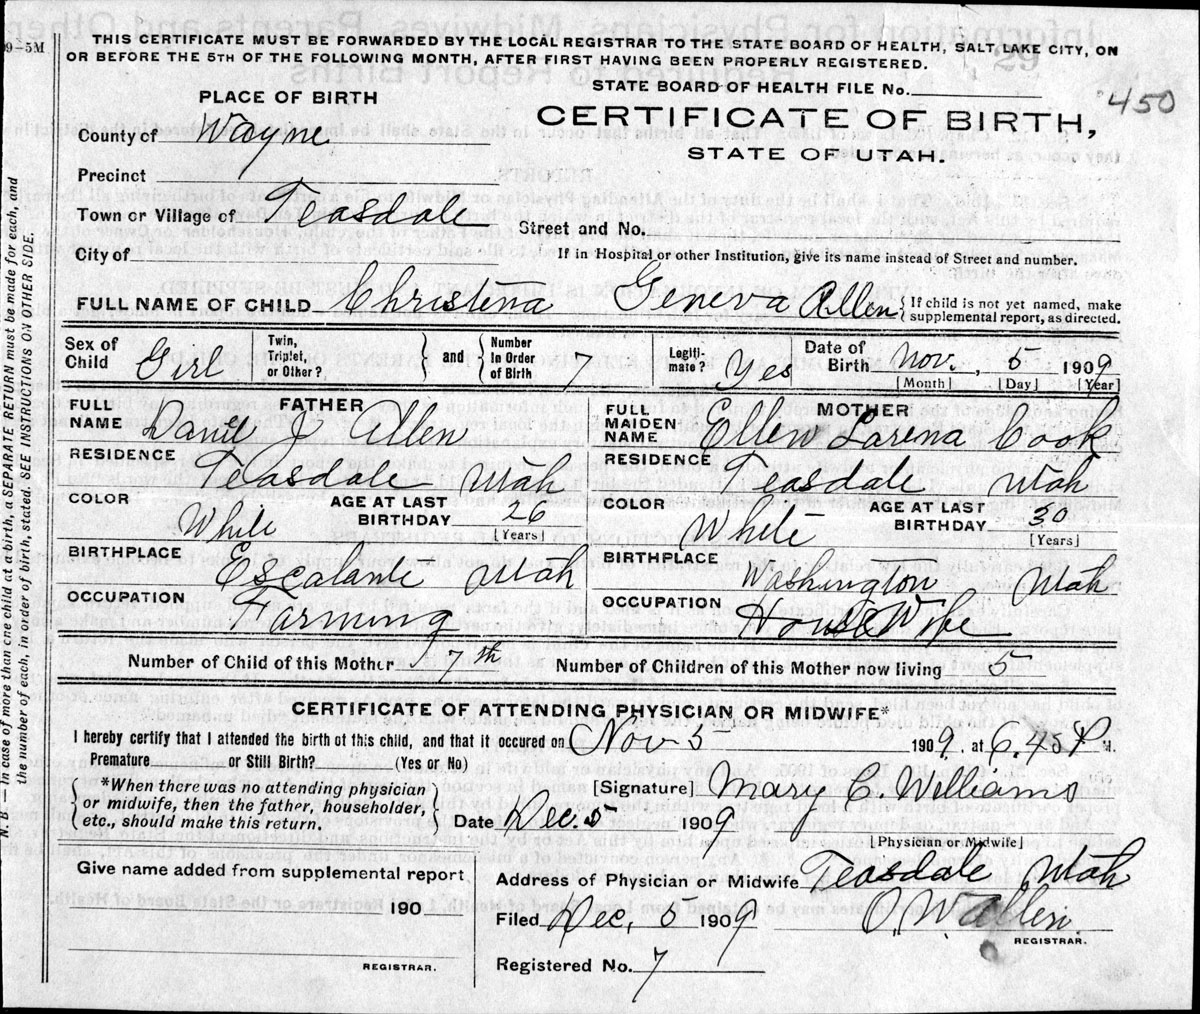 09-5M
THIS CERTIFICATE MUST BE FORWARDED BY THE LOCAL REGISTRAR TO THE STATE BOARD OF HEALTH, SALT LAKE CITY, ON
OR BEFORE THE 5TH OF THE FOLLOWING MONTH, AFTER FIRST HAVING BEEN PROPERLY REGISTERED.
29
STATE BOARD OF HEALTH FILE No.
450
PLACE OF BIRTH
CERTIFICATE OF BIRTH,
STATE OF UTAH.
County of Wayne
Precinct
Town or Village of Teasdale
Street and No.
City of
If in Hospital or other Institution, give its name instead of Street and number.
FULL NAME OF CHILD Christena Geneva Allen { If child is not yet named, make
supplemental report, as directed.
Sex of Child Girl Twin, Triplet, or Other? } and { Number in Order of Birth 7 Legiti-mate? Yes Date of Birth Nov. 5 1909
[Month] [Day] [Year]
FATHER
FULL NAME Daniel J Allen
MOTHER
FULL MAIDEN NAME Ellen Larena Cook
RESIDENCE Teasdale Utah
RESIDENCE Teasdale Utah
COLOR White AGE AT LAST BIRTHDAY 26 [Years]
COLOR White AGE AT LAST BIRTHDAY 30 [Years]
BIRTHPLACE Escalante Utah
BIRTHPLACE Washington Utah
OCCUPATION Farming
OCCUPATION House Wife
Number of Child of this Mother 7th Number of Children of this Mother now living 5
CERTIFICATE OF ATTENDING PHYSICIAN OR MIDWIFE*
I hereby certify that I attended the birth of this child, and that it occured on Nov 5 1909. at 6.45 P. M.
Premature or Still Birth? (Yes or No)
*When there was no attending physician
or midwife, then the father, householder,
etc., should make this return.
[Signature] Mary E Williams
Date Dec. 5 1909
[Physician or Midwife]
Give name added from supplemental report
190
REGISTRAR.
Address of Physician or Midwife Teasdale Utah
Filed Dec, 5 1909 O. W. Allen.
REGISTRAR.
Registered No. 7
N. B.—In case of more than one child at a birth, a SEPARATE RETURN must be made for each, and
the number of each, in order of birth, stated. SEE INSTRUCTIONS ON OTHER SIDE.